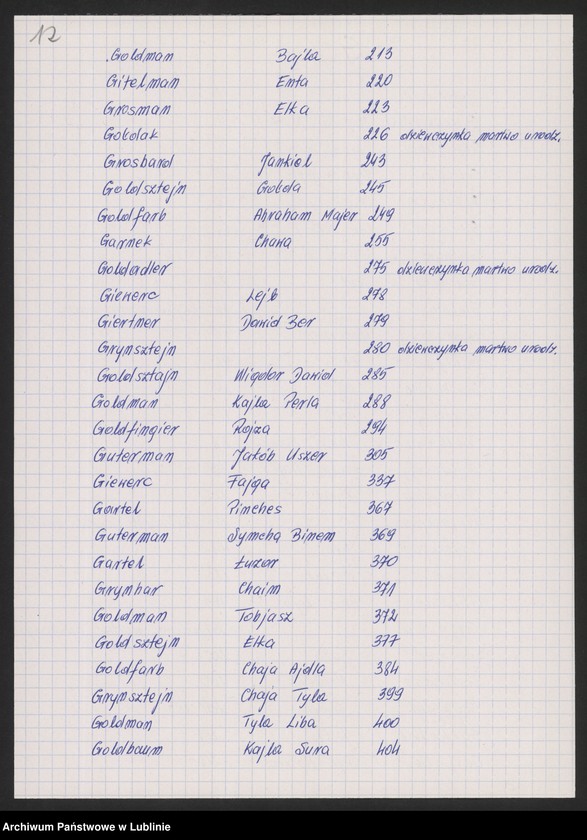 12
Goldman Bajla 213
Gitelman Enta 220
Grosman Elka 223
Gokolak 226 dziewczynka martwo urodz.
Grosbard Jankiel 243
Goldsztejn Gokda 245
Goldfarb Abraham Majer 249
Garnek Chawa 255
Goldadler 275 dziewczynka martwo urodz.
Gienerc Lejb 278
Giertner Dawid Ber 279
Grynsztejn 280 dziewczynka martwo urodz.
Goldsztajn Wigdor Dawid 285
Goldman Kajla Perla 288
Goldfingier Rojza 294
Guterman Jakób Uszer 305
Gienerc Fajga 337
Gartel Pinches 367
Guterman Symcha Binem 369
Gartel Łuzor 370
Grynbar Chaim 371
Goldman Tobjasz 372
Goldsztejn Elka 377
Goldfarb Chaja Ajdla 384
Grynsztejn Chaja Tyla 399
Goldman Tyla Liba 400
Goldbaum Kajla Sura 404
Archiwum Państwowe w Lublinie